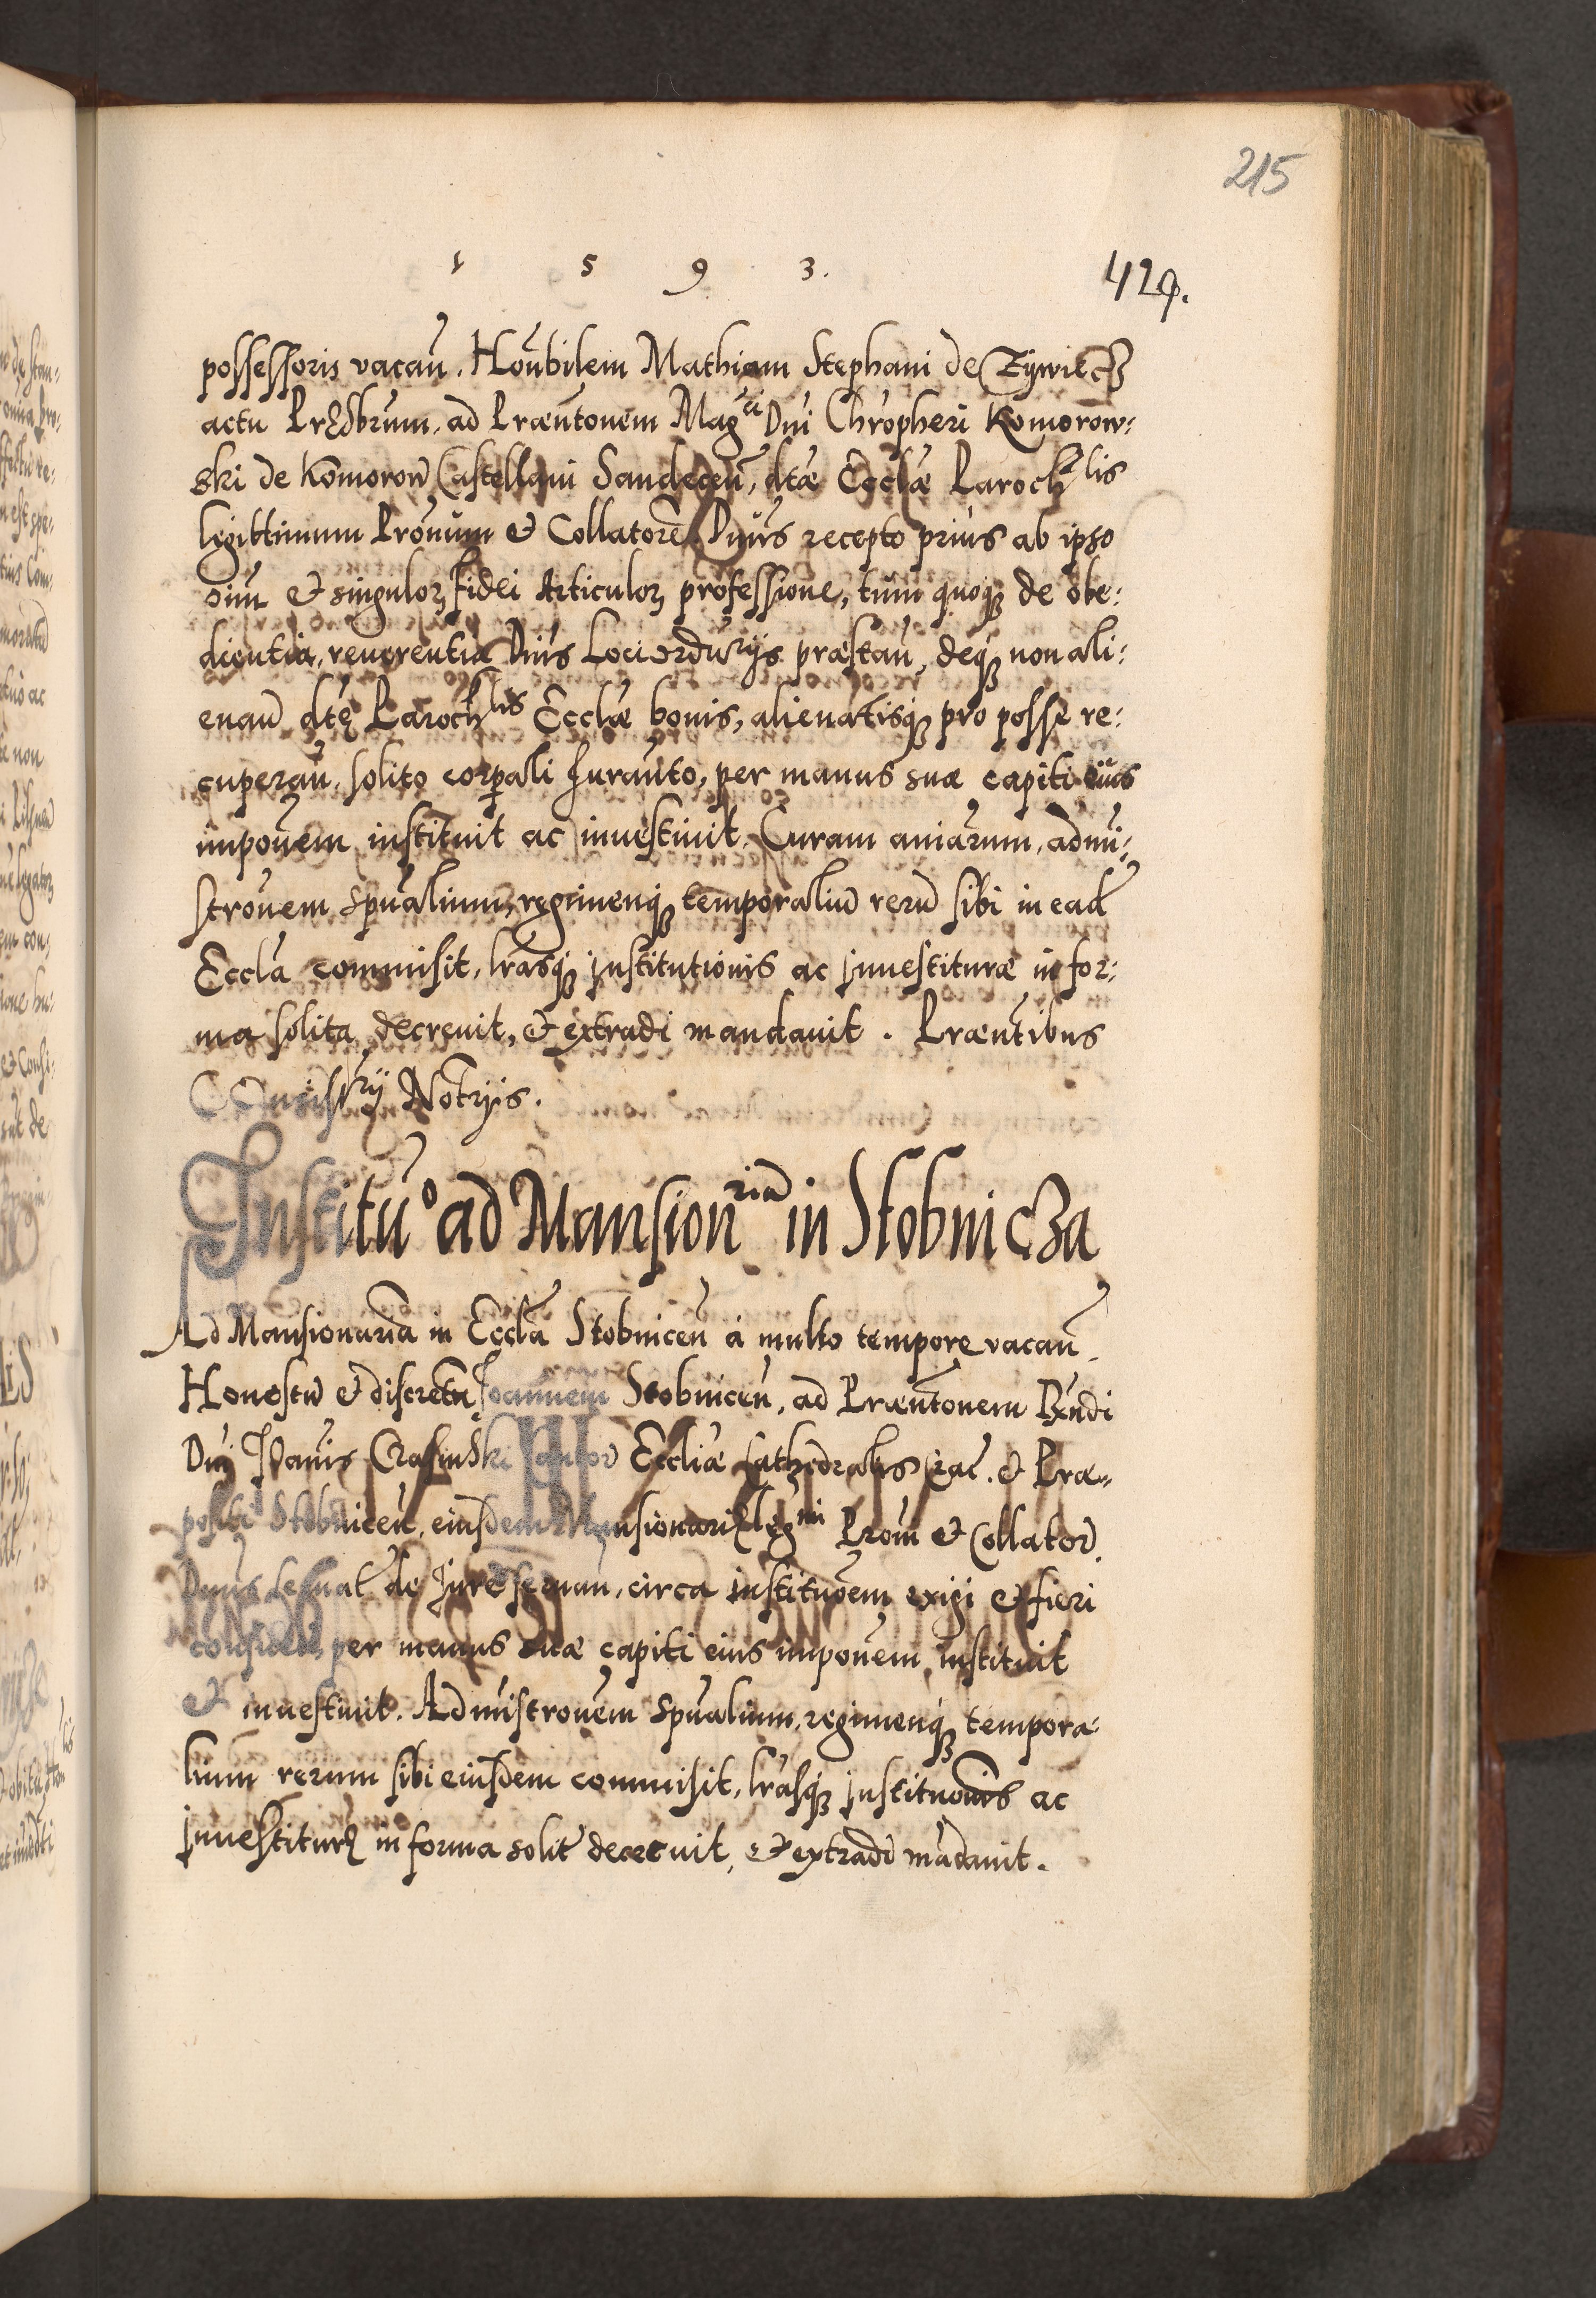 215
1 5 9 3.
429.
possessoris vacan̄. Hon̄bilem Mathiam Stephani de Zÿwiecz
actu Pręsbr̄um, ad Præn̄tonem Mag^ci Dn̄i Chr̄opheri Komorow:
ski de Komorow Castellani Sandecen̄, dt̄æ Eccl̄æ Paroch^lis
legittimum Pron̄um et Collatorē. Dn̄us recepto prius ab ipso
oīm et singuloꝝ fidei Articuloꝝ professione, tum quoqꝫ de obe:
dientia, reuerentia Dn̄is Loci ordn^rijs præstan̄, deqꝫ non ali:
enan̄ dt̄ę Paroch^lis Eccl̄æ bonis, alienatisqꝫ pro posse re:
cuperan̄, solito corꝑali Juran̄to, per manus suæ capiti eius
impon̄em instituit ac inuestiuit. Curam anīarum, admi:
stron̄em sp̄ualium, regimenqꝫ temporaliū rerū sibi in ead̄
Eccl̄a commisit, lr̄asqꝫ Institutionis ac Inuestituræ in for:
ma solita decreuit, et extradi mandauit. Præn̄tibus
Consist^rij Not̄rijs.
Institu^o ad Mansion^riā in Stobnicza
Ad Mansionariā in Eccl̄a Stobnicen̄ à multo tempore vacan̄.
Honestū et discretū Joannem Stobnicen̄, ad Præn̄tonem R̄ndi
Dn̄i Joan̄is Crasinski Cantor̄ Eccliæ Cathedralis Crac̄. et Præ=
positi Stobnicen̄, eiusdem Mansionarię leg^mi Pron̄i et Collator̄.
Dn̄us seruat̄ de Jure seruan̄, circa institūoem exigi et fieri
consuet̄, per manus suæ capiti eius impon̄em instituit
et inuestiuit. Admistron̄em sp̄ualium, regimenqꝫ tempora:
lium rerum sibi eiusdem commisit, lr̄asqꝫ Institūonis ac
Inuestiturę in forma solit̄ decreuit, et extradi mādauit.